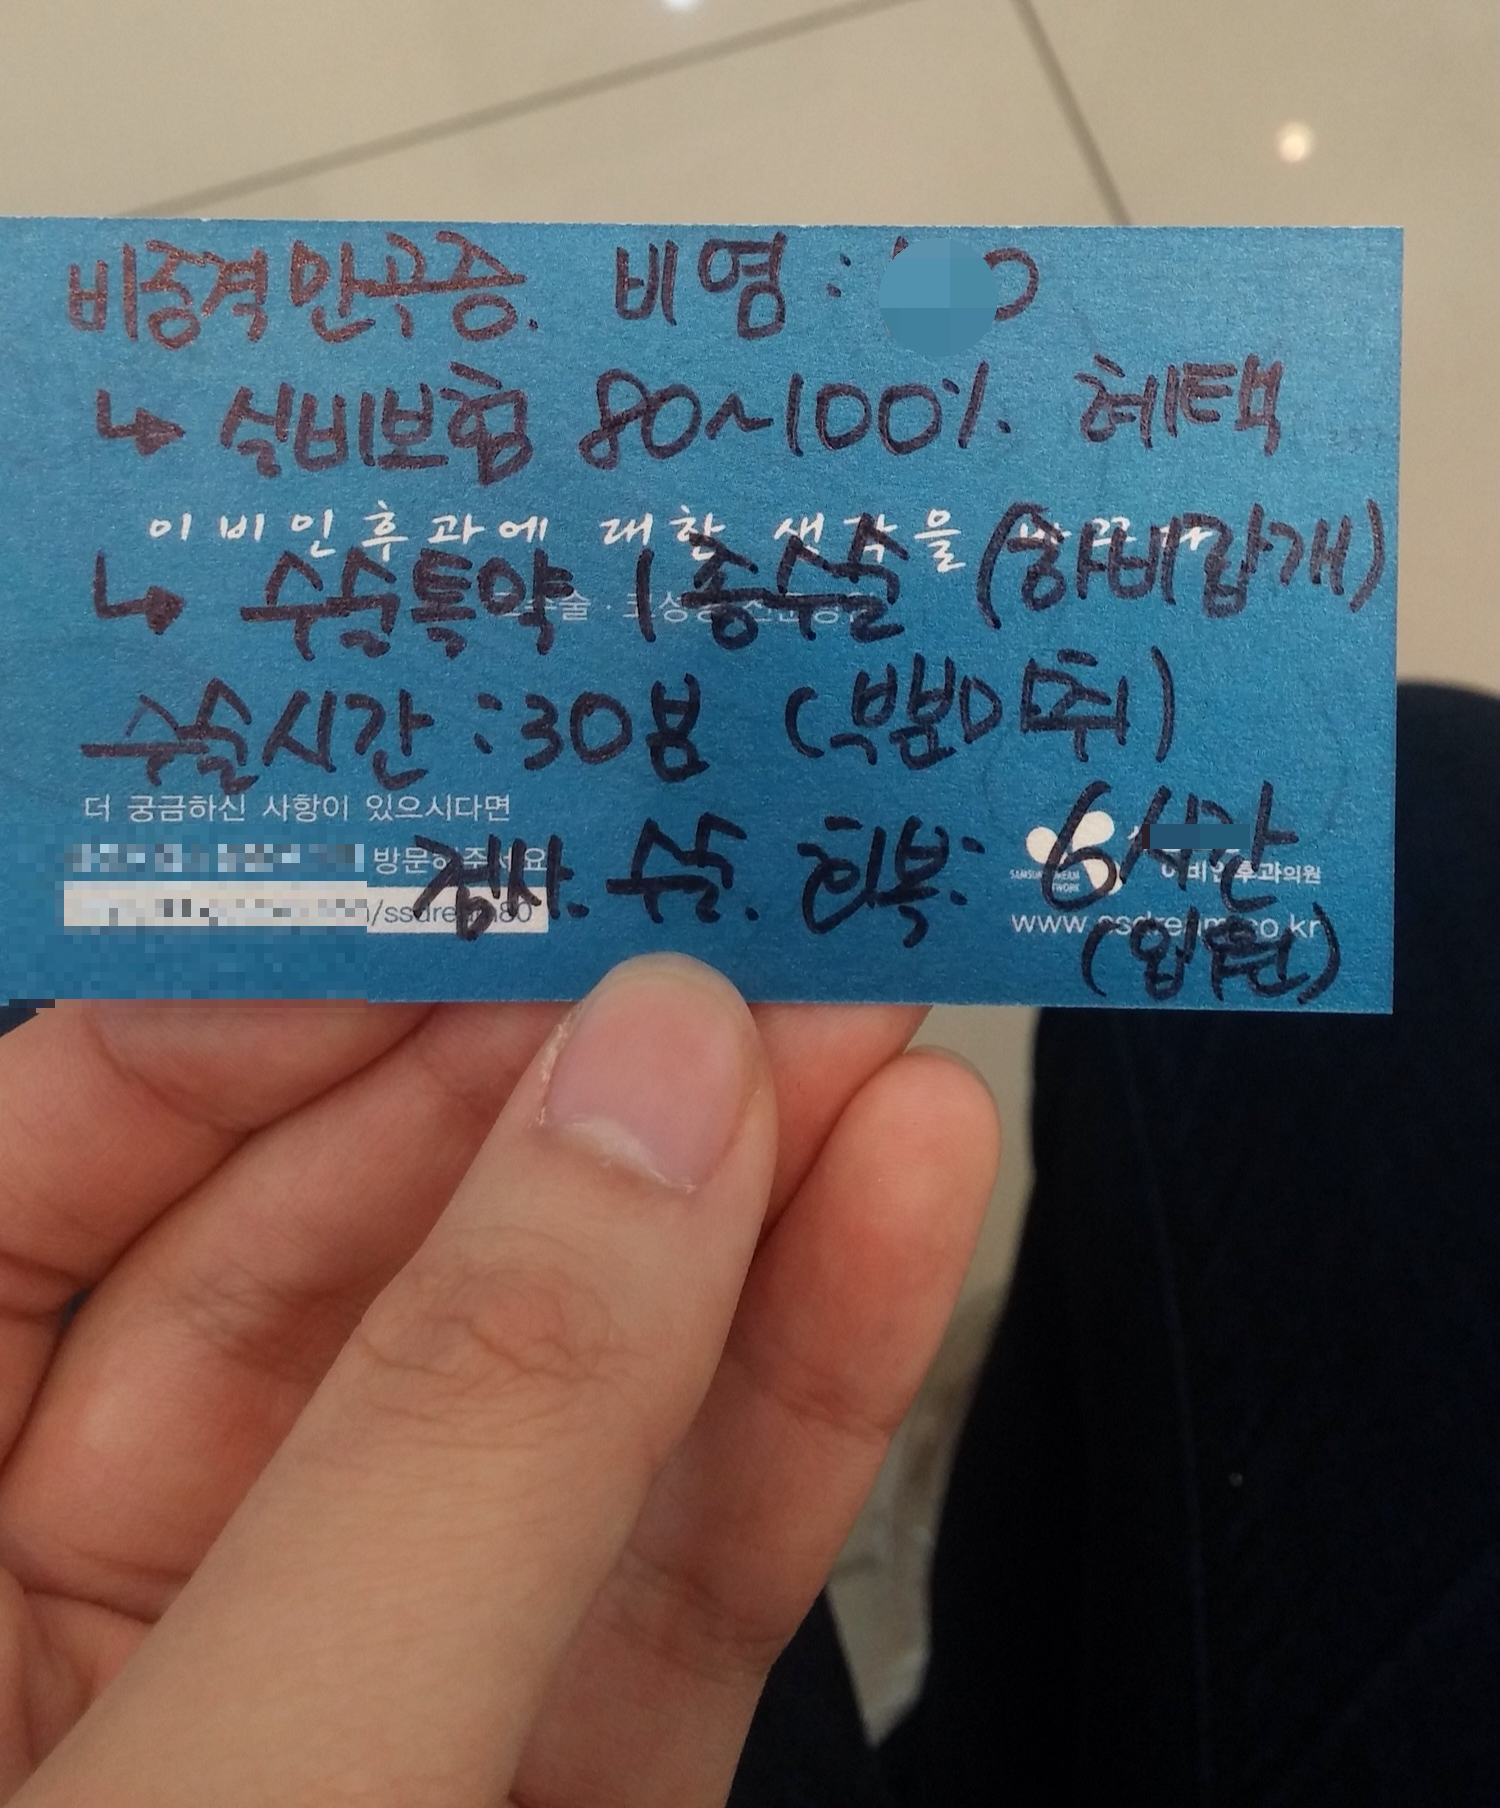 비중격만곡증. 비염 :
↳ 실비보험 80~100% 혜택
이비인후과에 대한 생각을
↳ 수술특약 1종수술 (하비갑개)
수술시간 : 30분 (부분마취)
더 궁금하신 사항이 있으시다면
방문해주세요
검사. 수술. 회복: 6시간
이비인후과의원
/ssdream80
www.ssdream.co.kr
(입원)